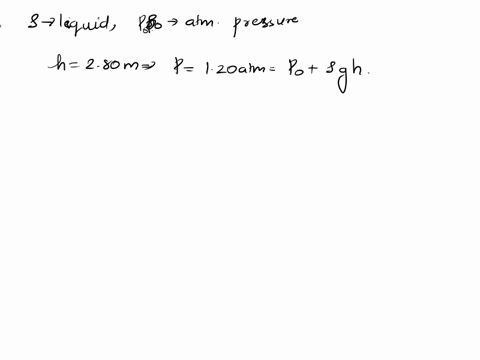 ρ → liquid, P₀ → atm. pressure
h = 2.80 m ⇒ P = 1.20 atm = P₀ + ρgh.